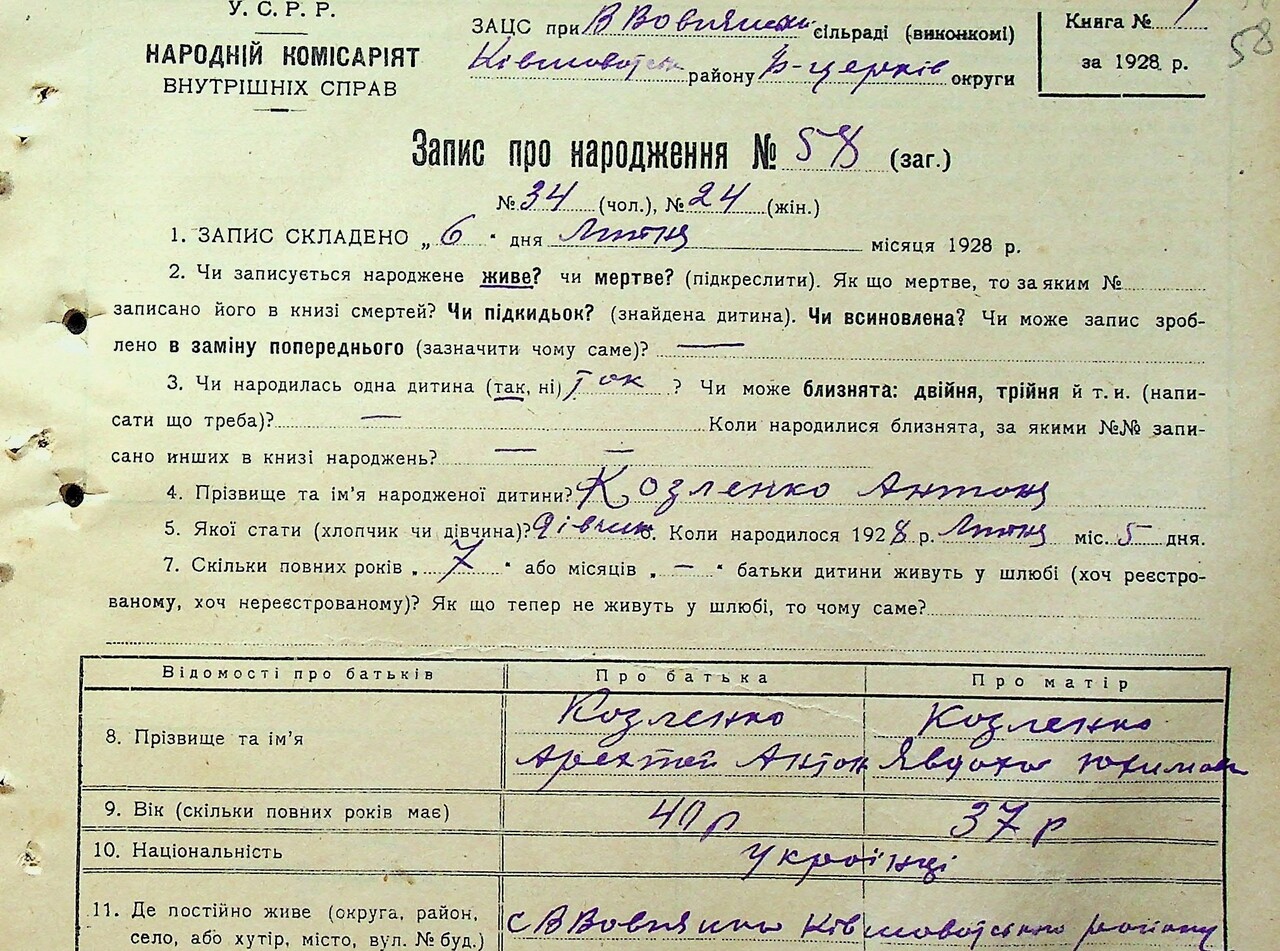 У. С. Р. Р.
НАРОДНІЙ КОМІСАРІЯТ
ВНУТРІШНІХ СПРАВ
ЗАЦС при В Вовнянській сільраді (виконкомі)
району Б-церків округи
Книга № 1
за 1928 р.
58
Запис про народження № 58 (заг.)
№ 34 (чол.), № 24 (жін.)
1. ЗАПИС СКЛАДЕНО „ 6 “ дня Лютня місяця 1928 р.
2. Чи записується народжене живе? чи мертве? (підкреслити). Як що мертве, то за яким №
записано його в книзі смертей? Чи підкидьок? (знайдена дитина). Чи всиновлена? Чи може запис зроб-
лено в заміну попереднього (зазначити чому саме)? —
3. Чи народилась одна дитина (так, ні) так ? Чи може близнята: двійня, трійня й т. и. (напи-
сати що треба)? — Коли народилися близнята, за якими №№ запи-
сано инших в книзі народжень? — —
4. Прізвище та ім’я народженої дитини? Козленко
5. Якої стати (хлопчик чи дівчина)? дівчин. Коли народилося 1928 р. Лютня міс. 5 дня.
7. Скільки повних років „ 7 “ або місяців „ — “ батьки дитини живуть у шлюбі (хоч реєстро-
ваному, хоч нереєстрованому)? Як що тепер не живуть у шлюбі, то чому саме?
Відомості про батьків Про батька Про матір
8. Прізвище та ім’я Козленко Козленко
Антон Явдоха Юхимов
9. Вік (скільки повних років має) 40 р 37 р
10. Національність Українці
11. Де постійно живе (округа, район,
село, або хутір, місто, вул. № буд.) с В Вовнянка району